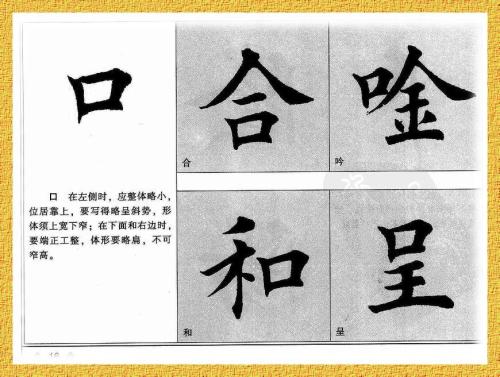 口
合
唫
合
吟
口 在左侧时，应整体略小，
位居靠上，要写得略呈斜势，形
体须上宽下窄；在下面和右边时，
要端正工整，体形要略扁，不可
窄高。
和
呈
和
呈